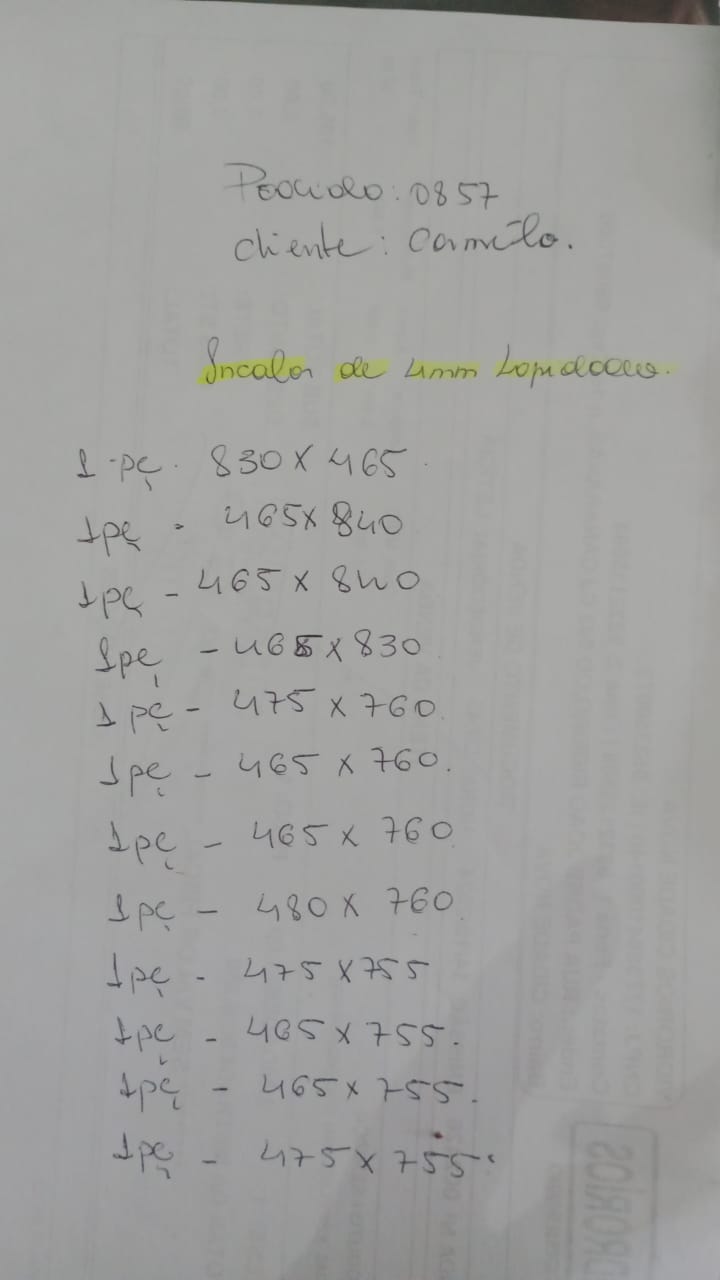 Pedido: 0857
cliente: Camilo.
Incolor de 4mm Lapidado.
1 pç. 830 x 465.
1pç - 465 x 840
1pç - 465 x 840
1pç - 465 x 830
1 pç - 475 x 760
1pç - 465 x 760.
1pç - 465 x 760
1pç - 480 x 760
1pç - 475 x 755
1pç - 465 x 755.
1pç - 465 x 755.
1pç - 475 x 755.